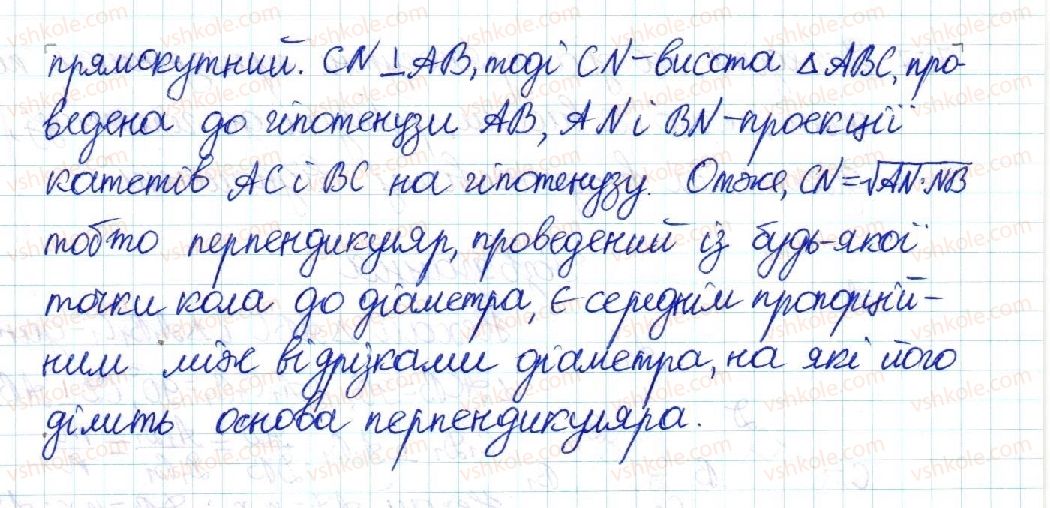 прямокутний. CN ⊥ AB, тоді CN – висота △ ABC, про-
ведена до гіпотенузи AB, AN і BN – проекції
катетів AC і BC на гіпотенузу. Отже, CN = √AN·NB
тобто перпендикуляр, проведений із будь-якої
точки кола до діаметра, є середнім пропорцій-
ним між відрізками діаметра, на які його
ділить основа перпендикуляра.